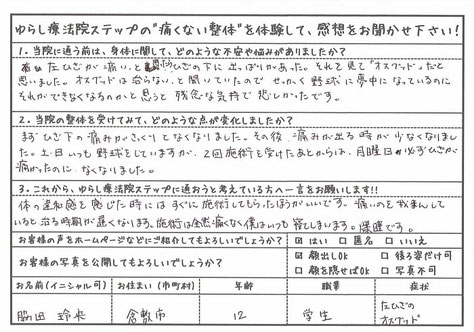 ゆらし療法院ステップの"痛くない整体"を体験して、感想をお聞かせ下さい!
1. 当院に通う前は、身体に関して、どのような不安や悩みがありましたか?
左ひざが痛い、と ひざの下に出っぱりがあった。それを見て"オスグット"だと
思いました。オスグットは治らないと聞いていたので せっかく野球に夢中になっているのに
それができなくなるのかと思うと 残念な気持で 悲しかったです。
2. 当院の整体を受けてみて、どのような点が変化しましたか?
まず ひざ下の痛みがざっくりとなくなりました。その後、痛みが出る時が少なくなりまし
た。土日いっも野球をしていますが、2回施術を受けたあとからは、月曜日が必ずひざが
痛かったのに、なくなりました。
3. これから、ゆらし療法院ステップに通おうと考えている方へ一言をお願いします!!
体の違和感を感じた時には すぐに施術してもらったほうがいいです。痛いのをがまんして
いると治る時期が遅くなります。施術は全然痛くなく僕はいつも寝てしまいます。爆睡です。
お客様の声をホームページなどにご紹介してもよろしいでしょうか? ☑はい □匿名 □いいえ
お客様の写真を公開してもよろしいでしょうか? ☑顔出しOK □後ろ姿だけ可
□顔を隠せばOK □写真不可
お名前(イニシャル可) お住まい(市町村) 年齢 職業 症状
脇田 玲央 倉敷市 12 学生 左ひざの
オスグット